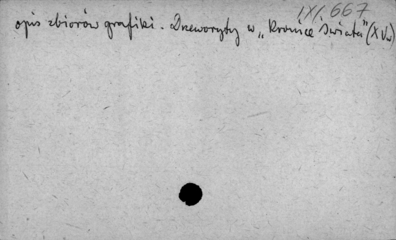 IXI.667
opis zbiorów grafiki. Drzeworyty w „Kronice Świata" (XVw)